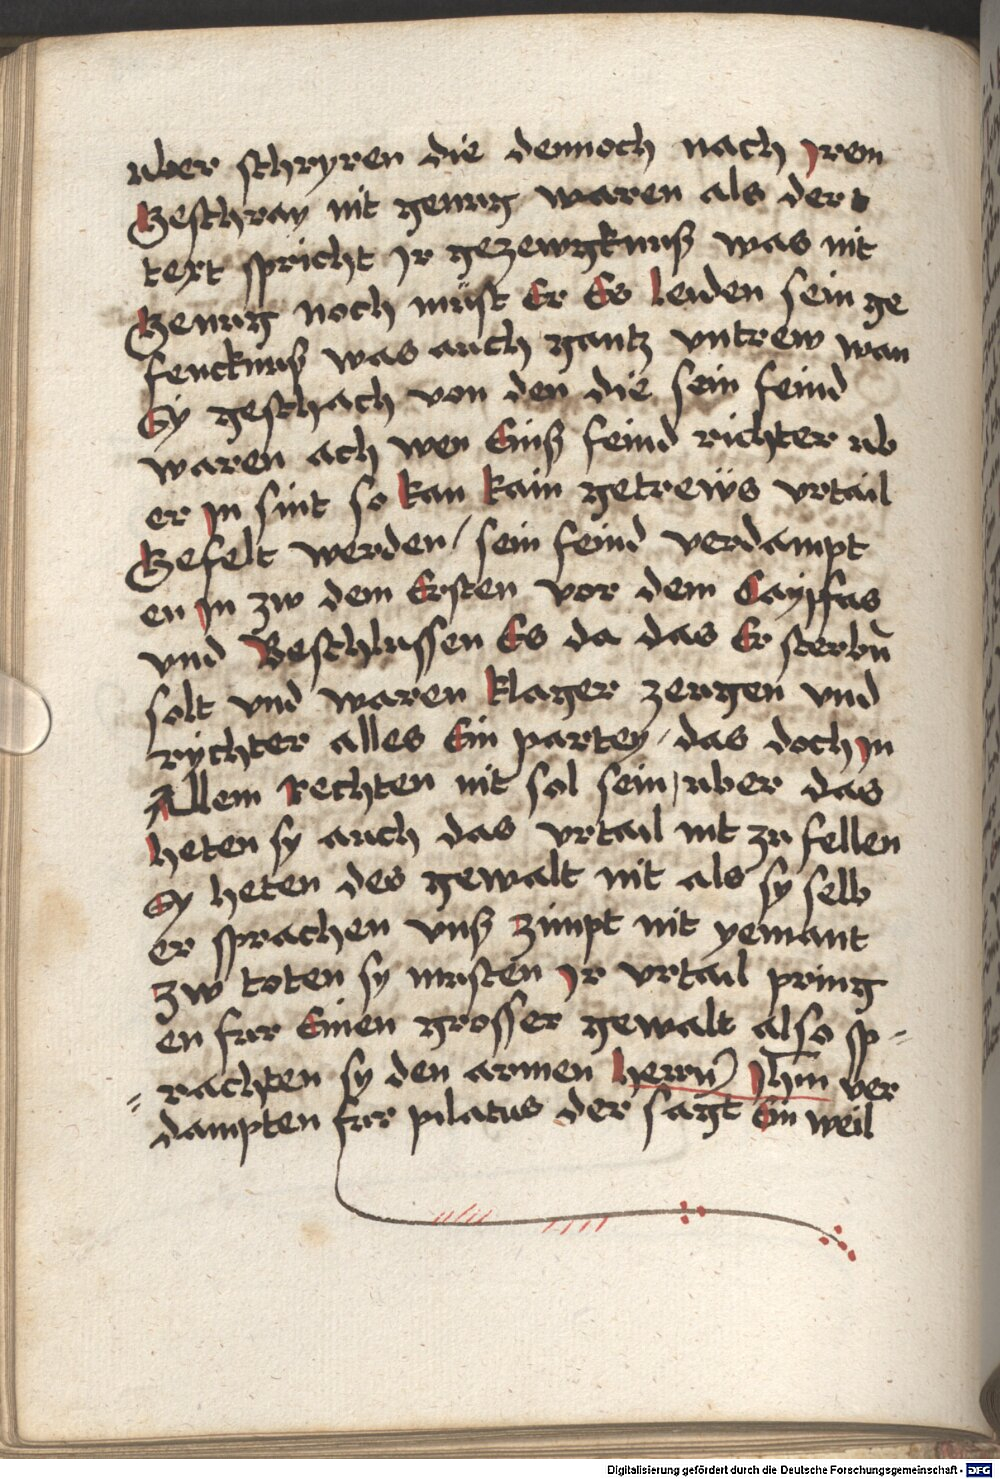 uber schryren die dennoch nach jrem
Geschray nit genug waren als der
text spricht jr gezewgknuß was nit
Genug noch müst Er Es leiden sein ge
fencknuß was auch gantz vntrew wan
Sy geschach von den die sein feind
waren ach wen Einß feind richter ub
er jn sint so kan kain getrews vrtail
Gefelt werden / sein feind verdampt
en jn zw dem Ersten vor dem Cayfas
vnd Beschlussen Es da das Er sterbn̄
solt vnd waren klager zeugen vnd
rychter alles Ein partey / das doch jn
Allem Rechten nit sol sein / uber das
heten sy auch das vrtail nit zu fellen
Sy heten des gewalt nit als sy selb
er sprachen vnß zimpt nit yemant
zw toten sy musten jr vrtail pring
en fur Einen grosser gewalt also sp=
=rachten sy den armen herrn Jhm̄ ver
dampten fur pilatus der sagt Ein weil
Digitalisierung gefördert durch die Deutsche Forschungsgemeinschaft - DFG